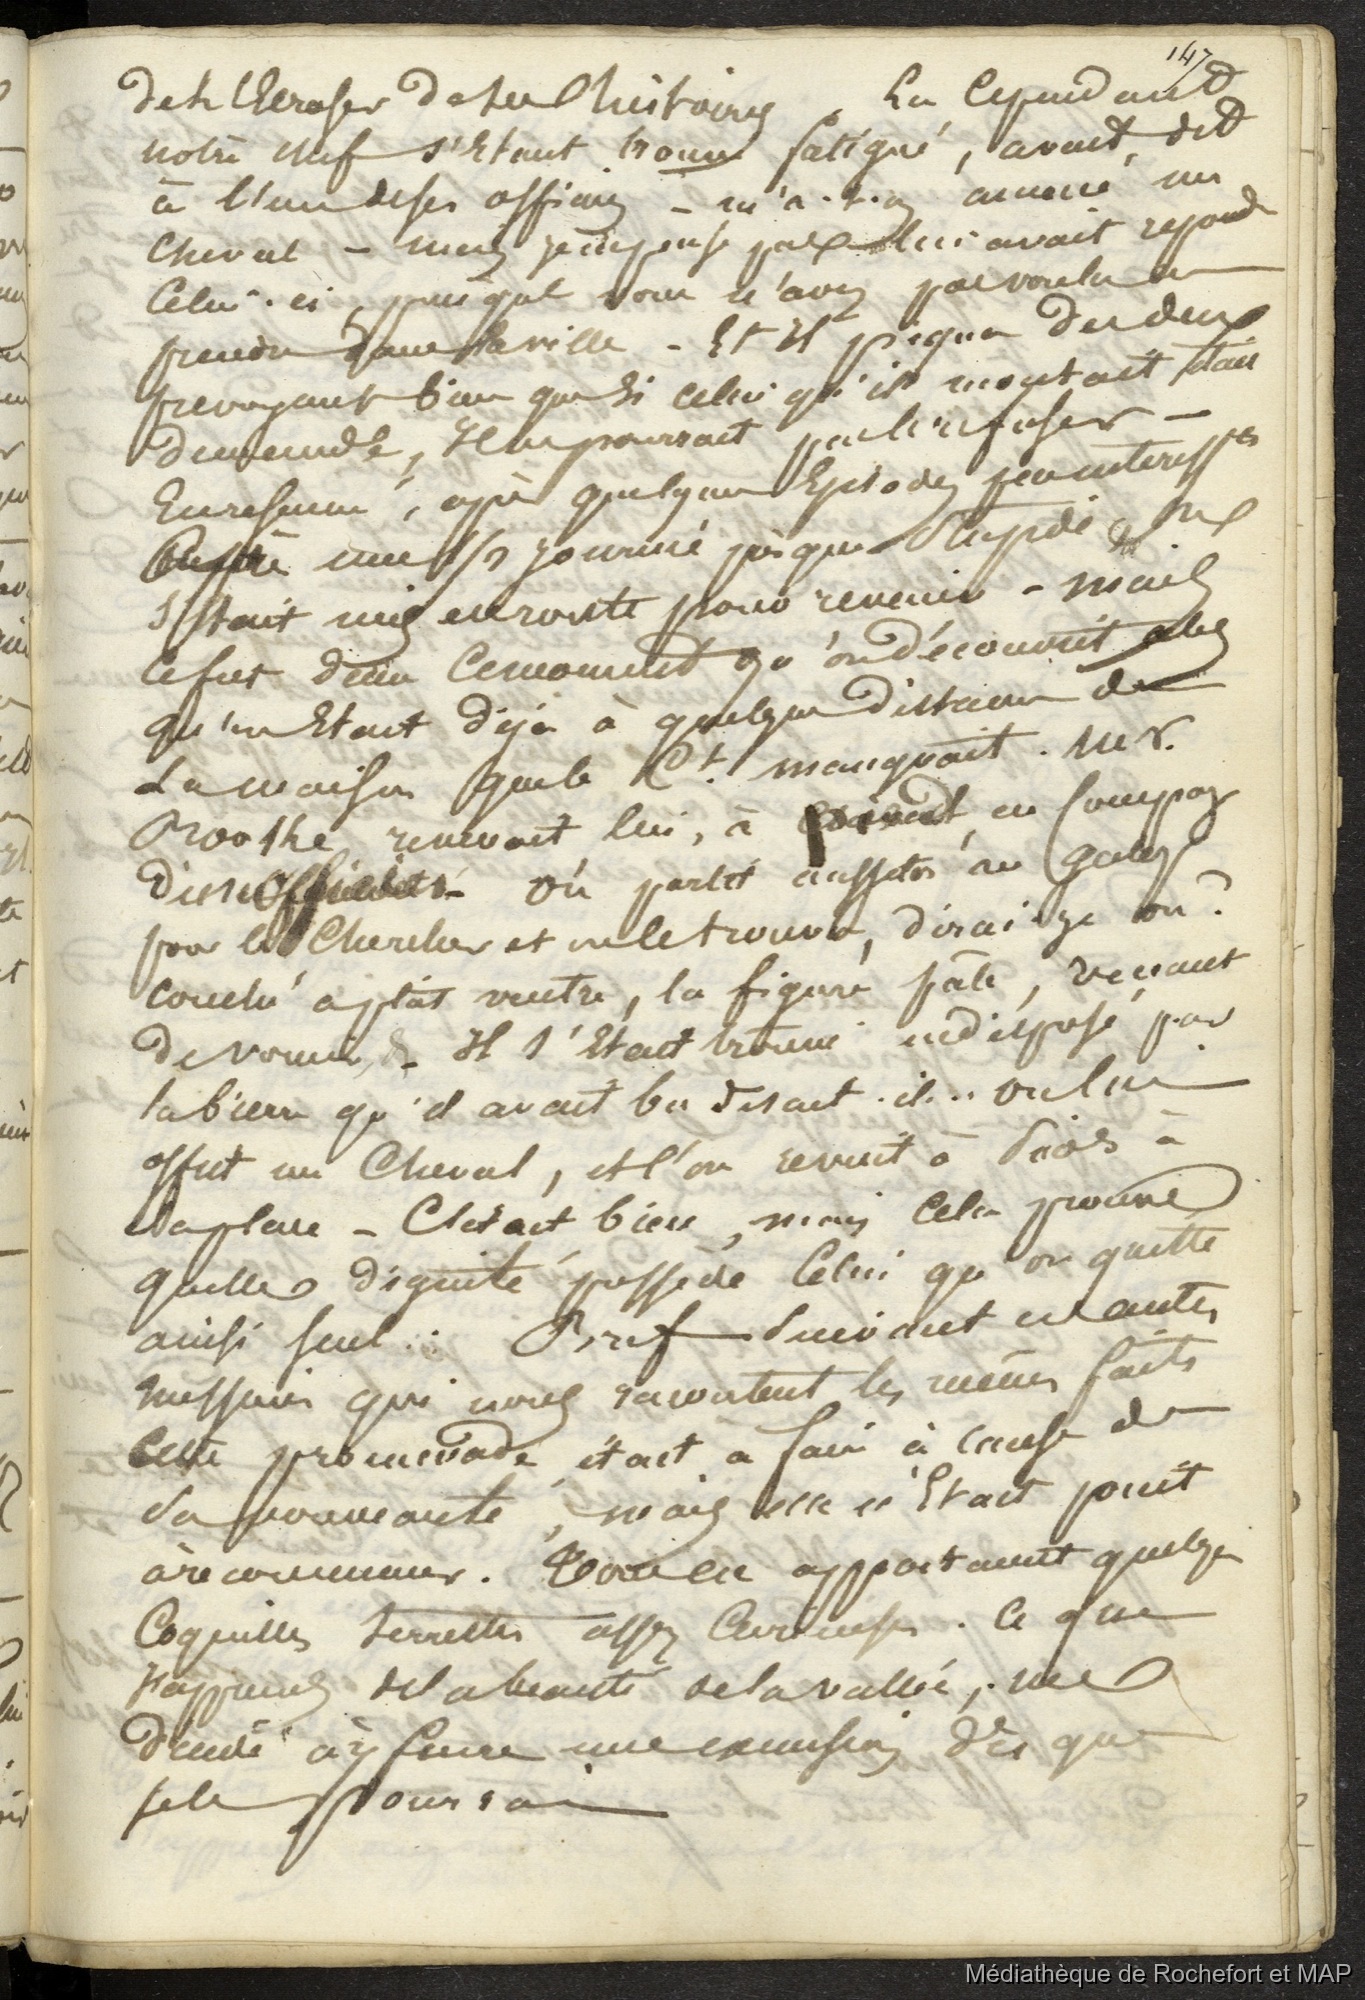 147
de l'Ecraser de ses histoires. En Cependant
notre chef s'Etant trouvé fatigué, avait dit
à l'un de ses officiers - m'a-t-on amené un
Cheval - mais je ne pense pas lui avait repondu
Celui-ci, puisque vous n'avez pas voulu en
prendre dans la ville - Et Il piqua des deux
prevoyant bien que si celui qu'il montait était
demandé, Il ne pourrait pas le refuser -
En resumé, après quelques Episodes peu interessants
une 1/2 journée presque stupide, on
s'Etait mis en route pour revenir - mais
Ce fut dans Ce moment qu'on découvrit alors
qu'on Etait déjà à quelque distance de
La maison que le Ct. manquait. Mr.
revenait lui, à en Compag
d'un On partit aussitot au Galop
pour le Chercher et on le trouva, dirai-je où?
couché aplat ventre, la figure pâle, venant
de vomir, - Il s'Etait trouvé indisposé par
la bierre qu'il avait bu disait-il.. On lui
offrit un Cheval, et l'on revint à
la place - C'était bien, mais Cela prouve
quelle dignité possède Celui qu'on quitte
ainsi seul. Bref suivant ces autres
messieurs qui nous racontent les mêmes faits
Cette promenade était à faire à cause de
sa nouveauté, mais elle n'Etait point
à recommencer. Tous en apportaient quelques
Coquilles terrestres assez Curieuses. Ce que
J'apprends de la beauté de la vallée, me
décide à y faire une excursion dès que
je le pourrai
Médiathèque de Rochefort et MAP